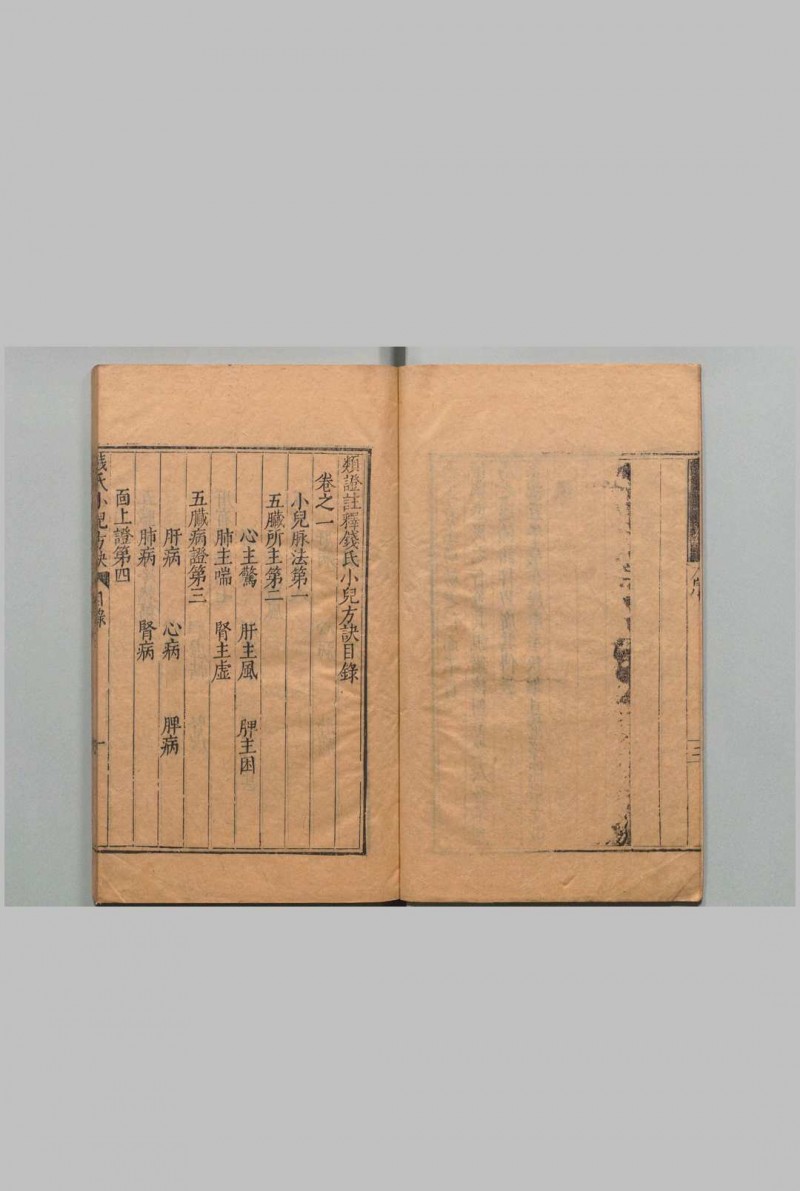 類證註釋錢氏小兒方訣目錄
卷之一
小兒脉法第一
五臟所主第二
心主驚　肝主風　脾主困
肺主喘　腎主虛
五臟病證第三
肝病　心病　脾病
肺病　腎病
面上證第四
錢氏小兒方訣　目錄　一